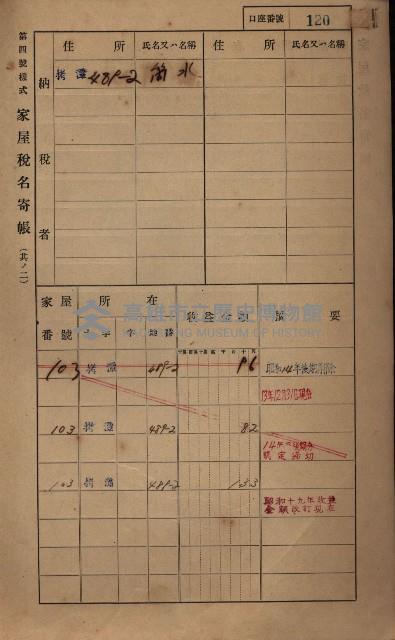 口座番號 120
第四號樣式 家屋稅名寄帳 (其ノ二)
納稅者
住所 氏名又ハ名稱 住所 氏名又ハ名稱
拷潭 489-2 水
家屋番號 所在 稅金額 要
字 地番
103 拷潭 489-2 96
昭和14年
13年12月31日現在
103 拷潭 489-2 82
14年
103 拷潭 489-2 133
昭和十九年改
金額改訂現在
高雄市立歷史博物館
KAOHSIUNG MUSEUM OF HISTORY